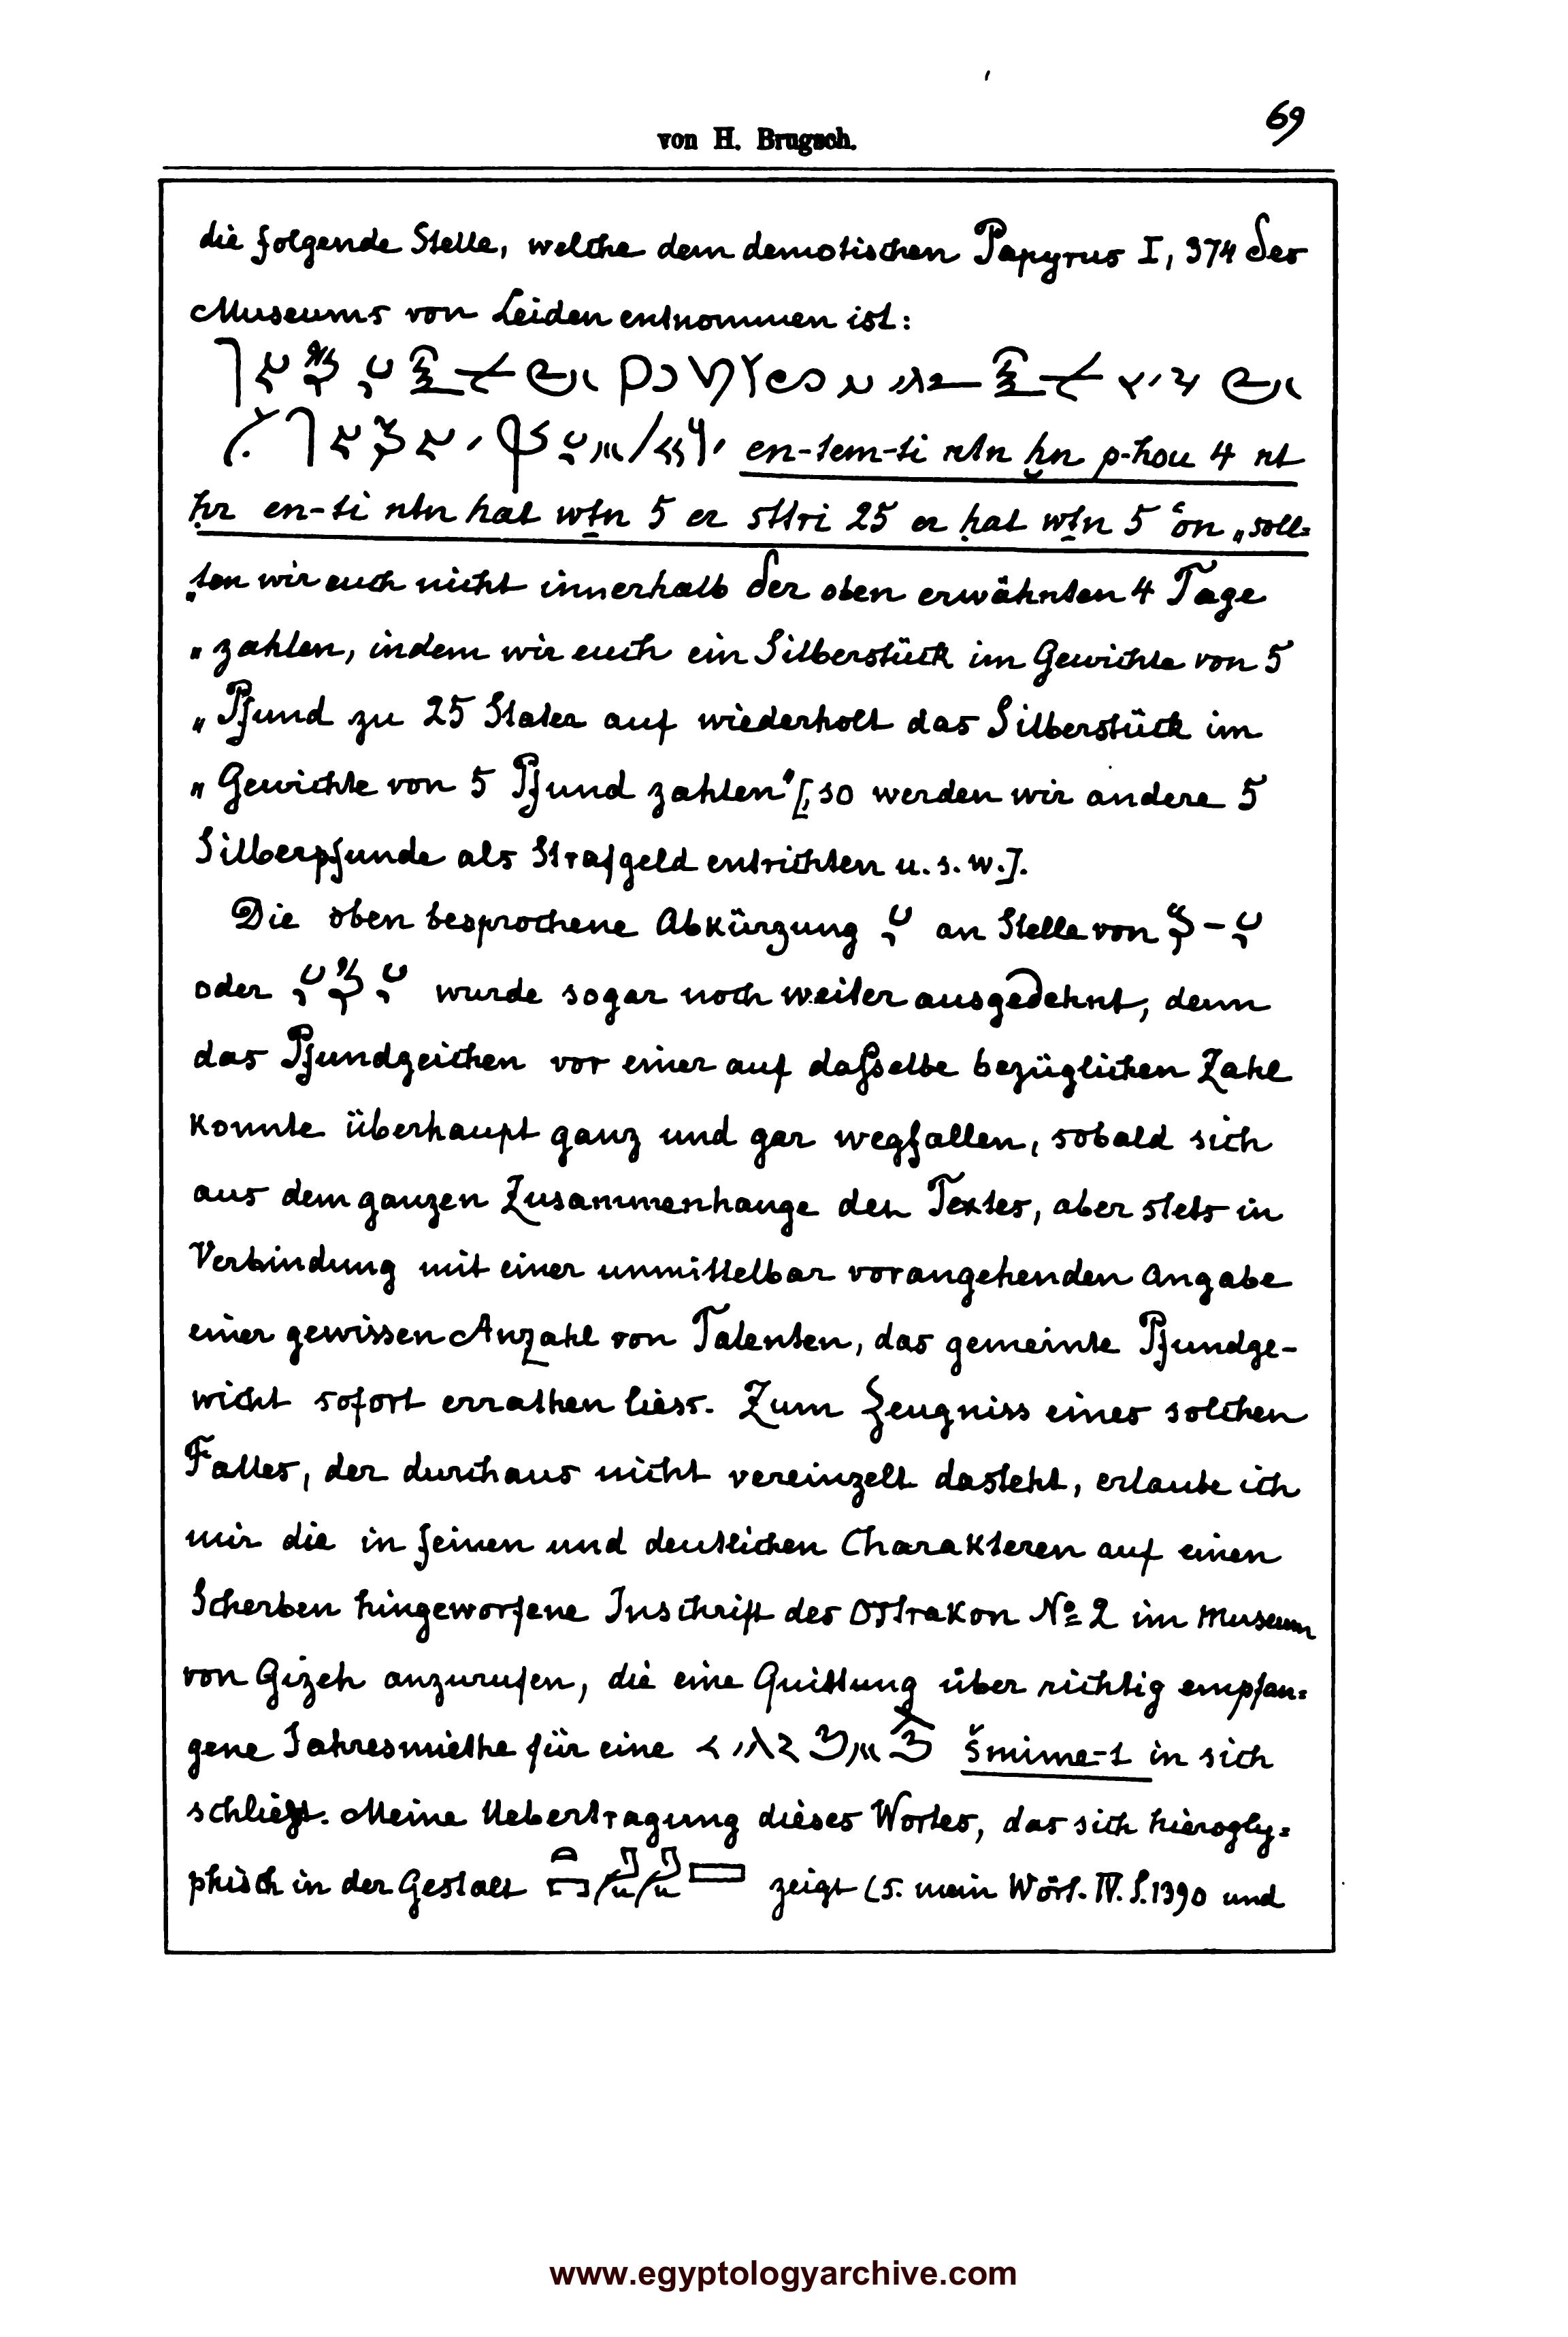 69
von H. Brugsch.
die folgende Stelle, welche dem demotischen Papyrus I, 374 des
Museums von Leiden entnommen ist:
en-tem-ti ntn ẖn p-hou 4 nt
ḥr en-ti ntn hat wṯn 5 er sttri 25 er ḥat wṯn 5 ʿon „soll=
„ten wir euch nicht innerhalb der oben erwähnten 4 Tage
„zahlen, indem wir euch ein Silberstück im Gewichte von 5
„Pfund zu 25 Stater auf wiederholt das Silberstück im
„Gewichte von 5 Pfund zahlen“ [, so werden wir andere 5
Silberpfunde als Strafgeld entrichten u. s. w.].
Die oben besprochene Abkürzung an Stelle von
oder wurde sogar noch weiter ausgedehnt, denn
das Pfundzeichen vor einer auf daſselbe bezüglichen Zahl
konnte überhaupt ganz und gar wegfallen, sobald sich
aus dem ganzen Zusammenhange des Textes, aber stets in
Verbindung mit einer unmittelbar vorangehenden Angabe
einer gewissen Anzahl von Talenten, das gemeinte Pfundge-
wicht sofort errathen liess. Zum Zeugniss eines solchen
Falles, der durchaus nicht vereinzelt dasteht, erlaube ich
mir die in feinen und deutlichen Charakteren auf einen
Scherben hingeworfene Inschrift des Ostrakon No 2 im Museum
von Gizeh anzurufen, die eine Quittung über richtig empfan=
gene Jahresmiethe für eine šmime-t in sich
schließt. Meine Uebertragung dieses Wortes, das sich hierogly=
phisch in der Gestalt zeigt (s. mein Wört. IV. S. 1390 und
www.egyptologyarchive.com